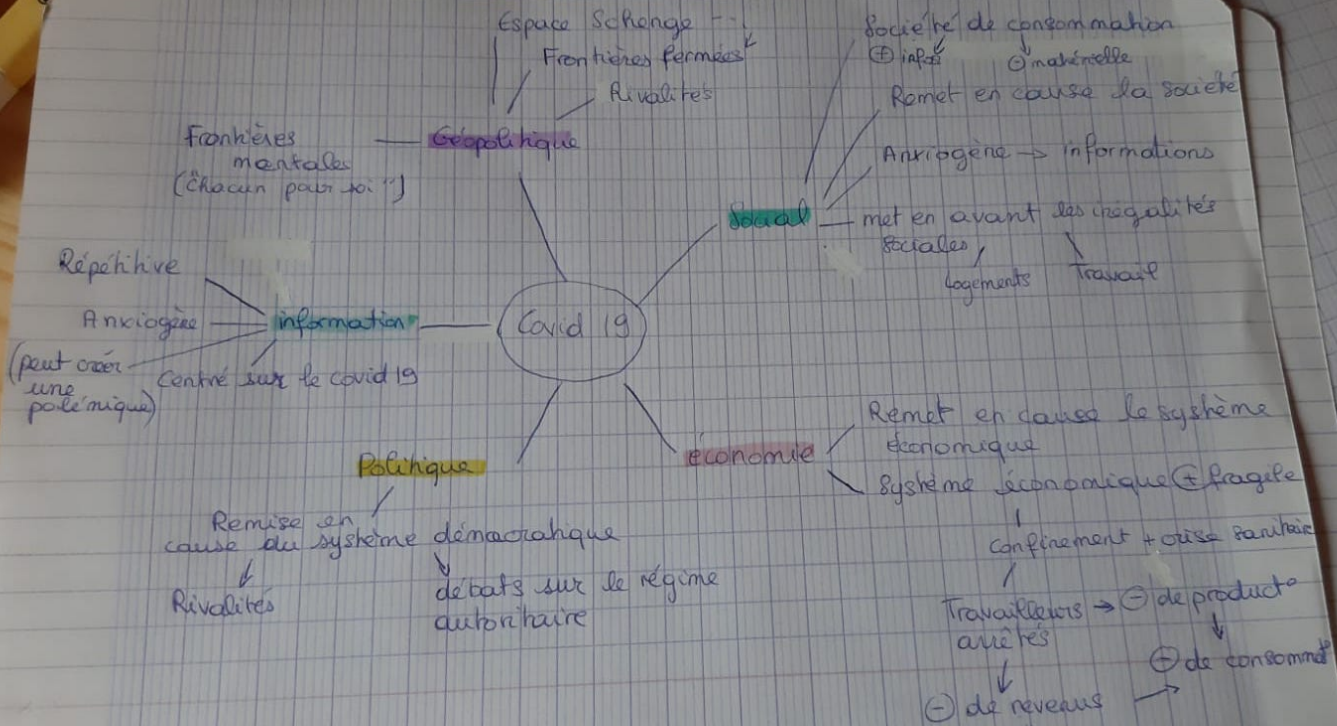 Espace Schenge
Frontières fermées
Rivalités
Géopolitique
Frontières
mentales
("Chacun pour soi")
Société de consommation
⊕ infos
⊖ matérielle
Remet en cause la société
Anxiogène → informations
Social
met en avant les inégalités
sociales
logements
Travail
Répétitive
Anxiogène
information
(peut créer
une
polémique)
Centré sur le covid 19
Covid 19
Politique
Remise en
cause du système démocratique
Rivalités
débats sur le régime
autoritaire
économie
Remet en cause le système
économique
Système économique ⊕ fragile
Confinement + crise sanitaire
Travailleurs → ⊖ de product°
arrêtés
⊕ de consommat°
⊖ de revenus